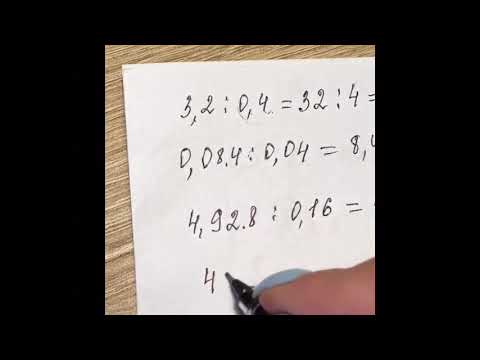 3,2 : 0,4 = 32 : 4 =
0,08.4 : 0,04 = 8,4
4,92.8 : 0,16 =
4